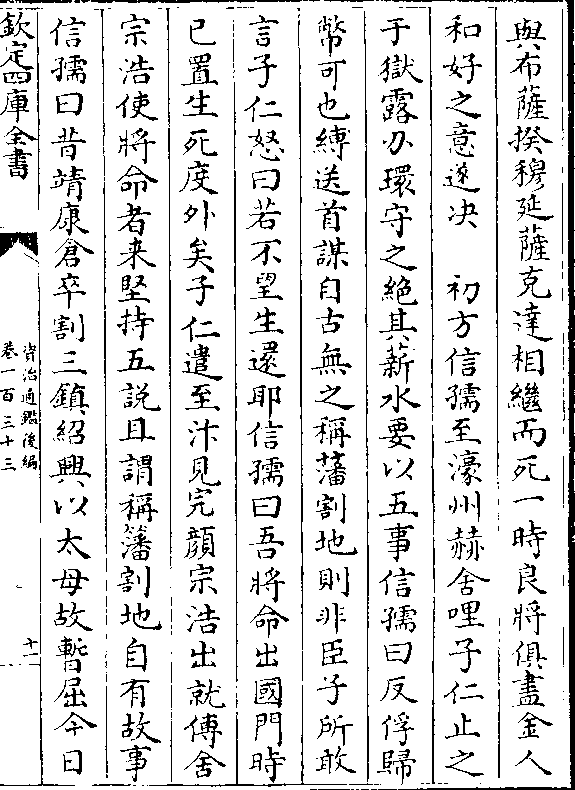 與布薩揆穆延薩克達相繼而死一時良將俱盡金人
和好之意遂決　初方信孺至濠州赫舍哩子仁止之
于獄露刃環守之絶其薪水要以五事信孺曰反俘歸
幣可也縛送首謀自古無之稱藩割地則非臣子所敢
言子仁怒曰若不望生還耶信孺曰吾將命出國門時
已置生死度外矣子仁遣至汴見完顔宗浩出就傳舍
宗浩使將命者來堅持五説且謂稱籓割地自有故事
信孺曰昔靖康倉卒割三鎮紹興以太母故暫屈今日
欽定四庫全書
資治通鑑後編
卷一百三十三
十一